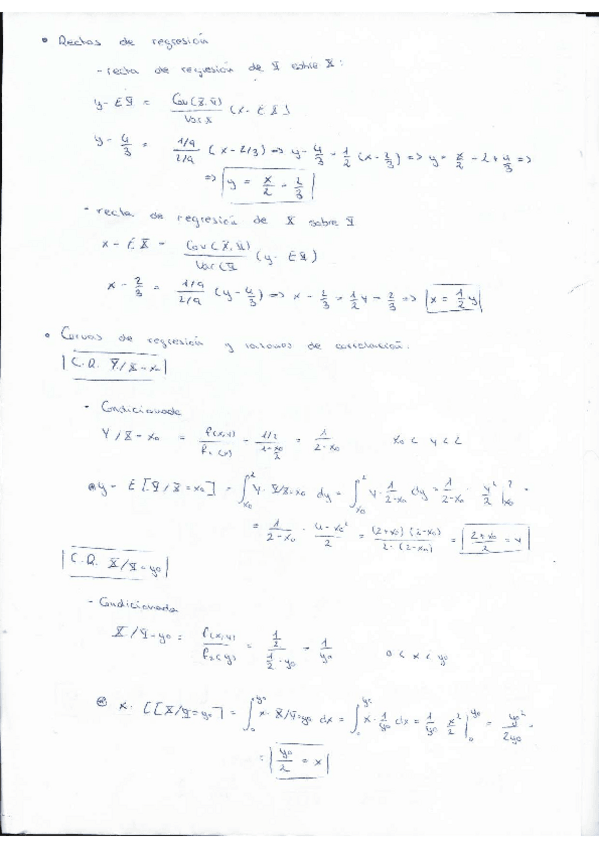 • Rectas de regresión
- recta de regresión de Y sobre X:
y - EY = Cov(X,Y)/Var X (x - EX)
y - 4/3 = 1/9 / 2/9 (x - 2/3) => y - 4/3 = 1/2 (x - 2/3) => y = x/2 - 2 + 4/3 =>
=> y = x/2 - 2/3
- recta de regresión de X sobre Y
x - EX = Cov(X,Y)/Var(Y (y - EY)
x - 2/3 = 1/9 / 2/9 (y - 4/3) => x - 2/3 = 1/2 y - 2/3 => x = 1/2 y
• Curvas de regresión y razones de correlación.
C.R. Y/X=x₀
- Condicionada
Y/X=x₀ = f(x,y)/f₁(x) = 1/2 / 1-x₀/2 = 1/2-x₀ x₀ < y < 2
y = E[Y/X=x₀] = ∫x₀² y · Y/X=x₀ dy = ∫x₀² y · 1/2-x₀ dy = 1/2-x₀ · y²/2 |x₀² =
= 1/2-x₀ · 4-x₀²/2 = (2+x₀)(2-x₀)/2·(2-x₀) = 2+x₀/2 = y
C.R. X/Y=y₀
- Condicionada
X/Y=y₀ = f(x,y)/f₂(y) = 1/2 / 1/2·y₀ = 1/y₀ 0 < x < y₀
x = E[X/Y=y₀] = ∫₀y₀ x · X/Y=y₀ dx = ∫₀y₀ x · 1/y₀ dx = 1/y₀ x²/2 |₀y₀ = y₀²/2y₀ =
= y₀/2 = x